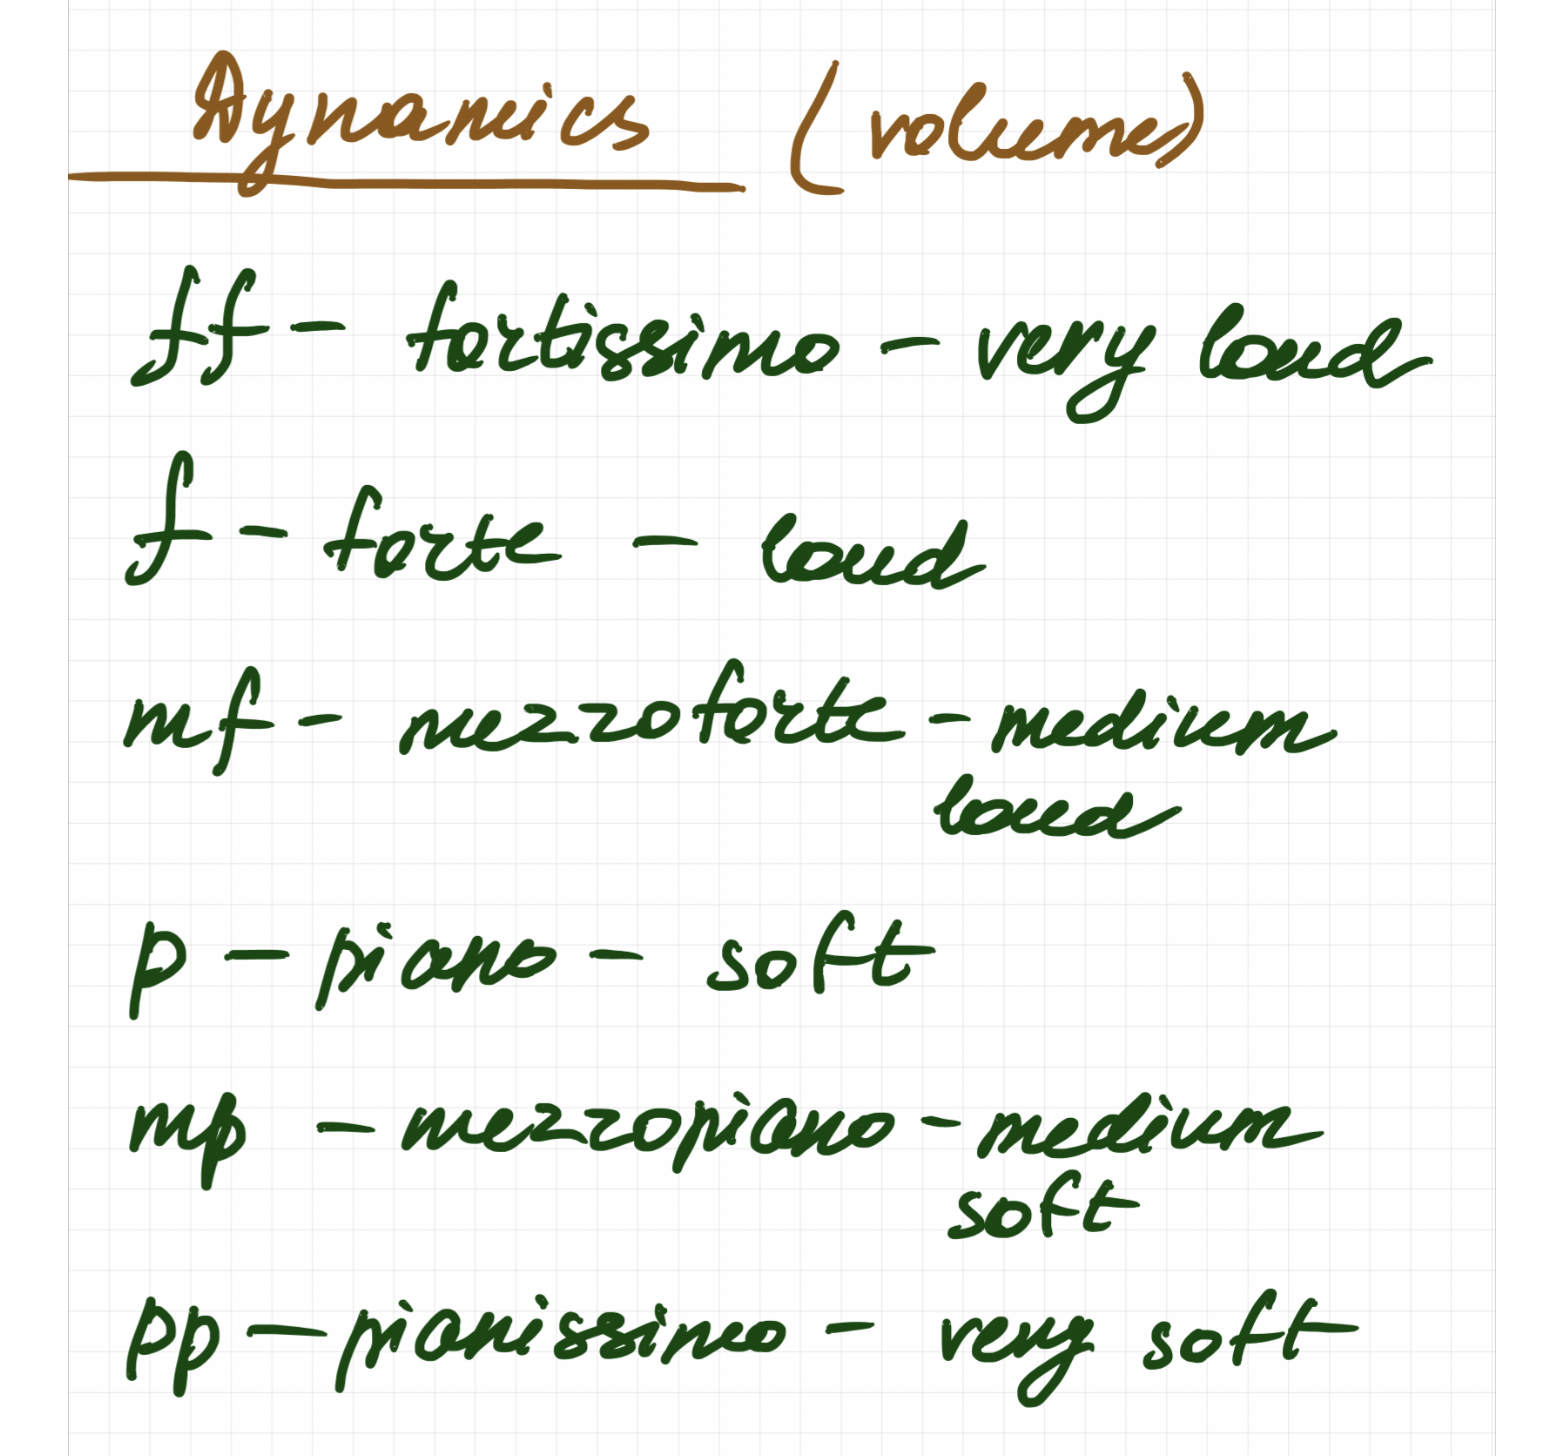 Dynamics (volume)
ff - fortissimo - very loud
f - forte - loud
mf - mezzoforte - medium
loud
p - piano - soft
mp - mezzopiano - medium
soft
pp - pianissimo - very soft